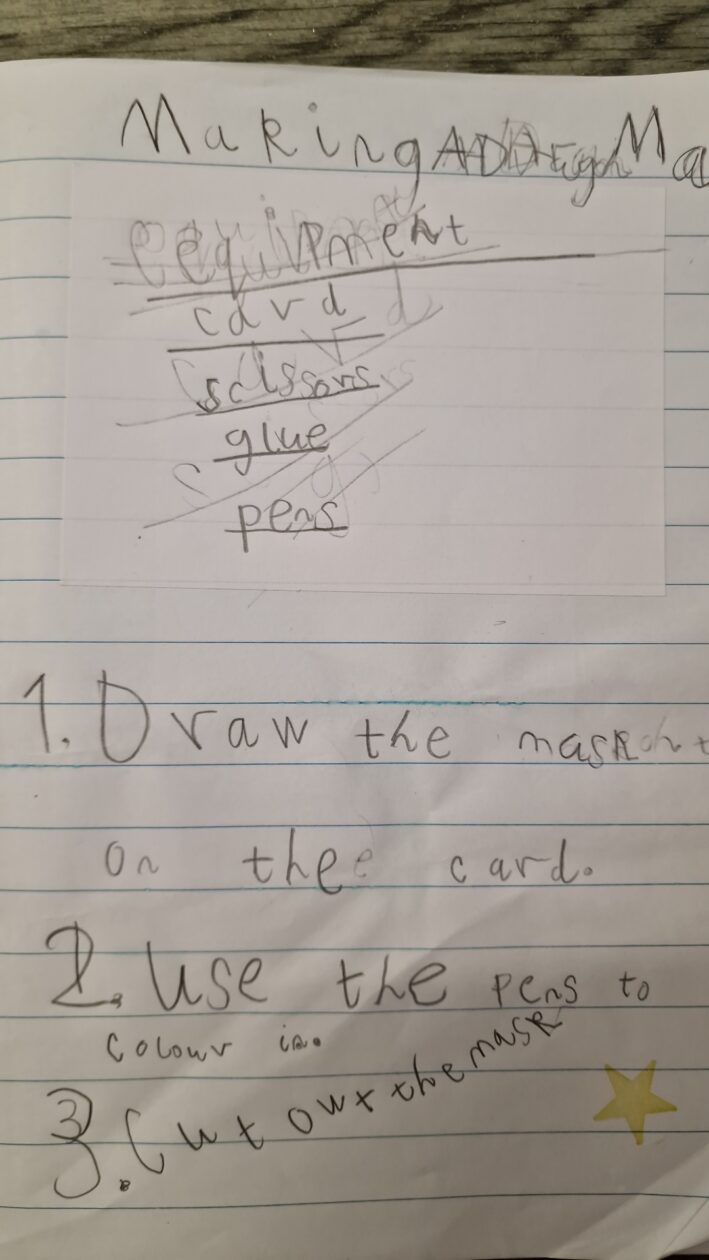 Making A Ma
equipment
card
scissors
glue
pens
1. Draw the mask
on the card.
2. Use the pens to
colour in.
3. Cut out the mask